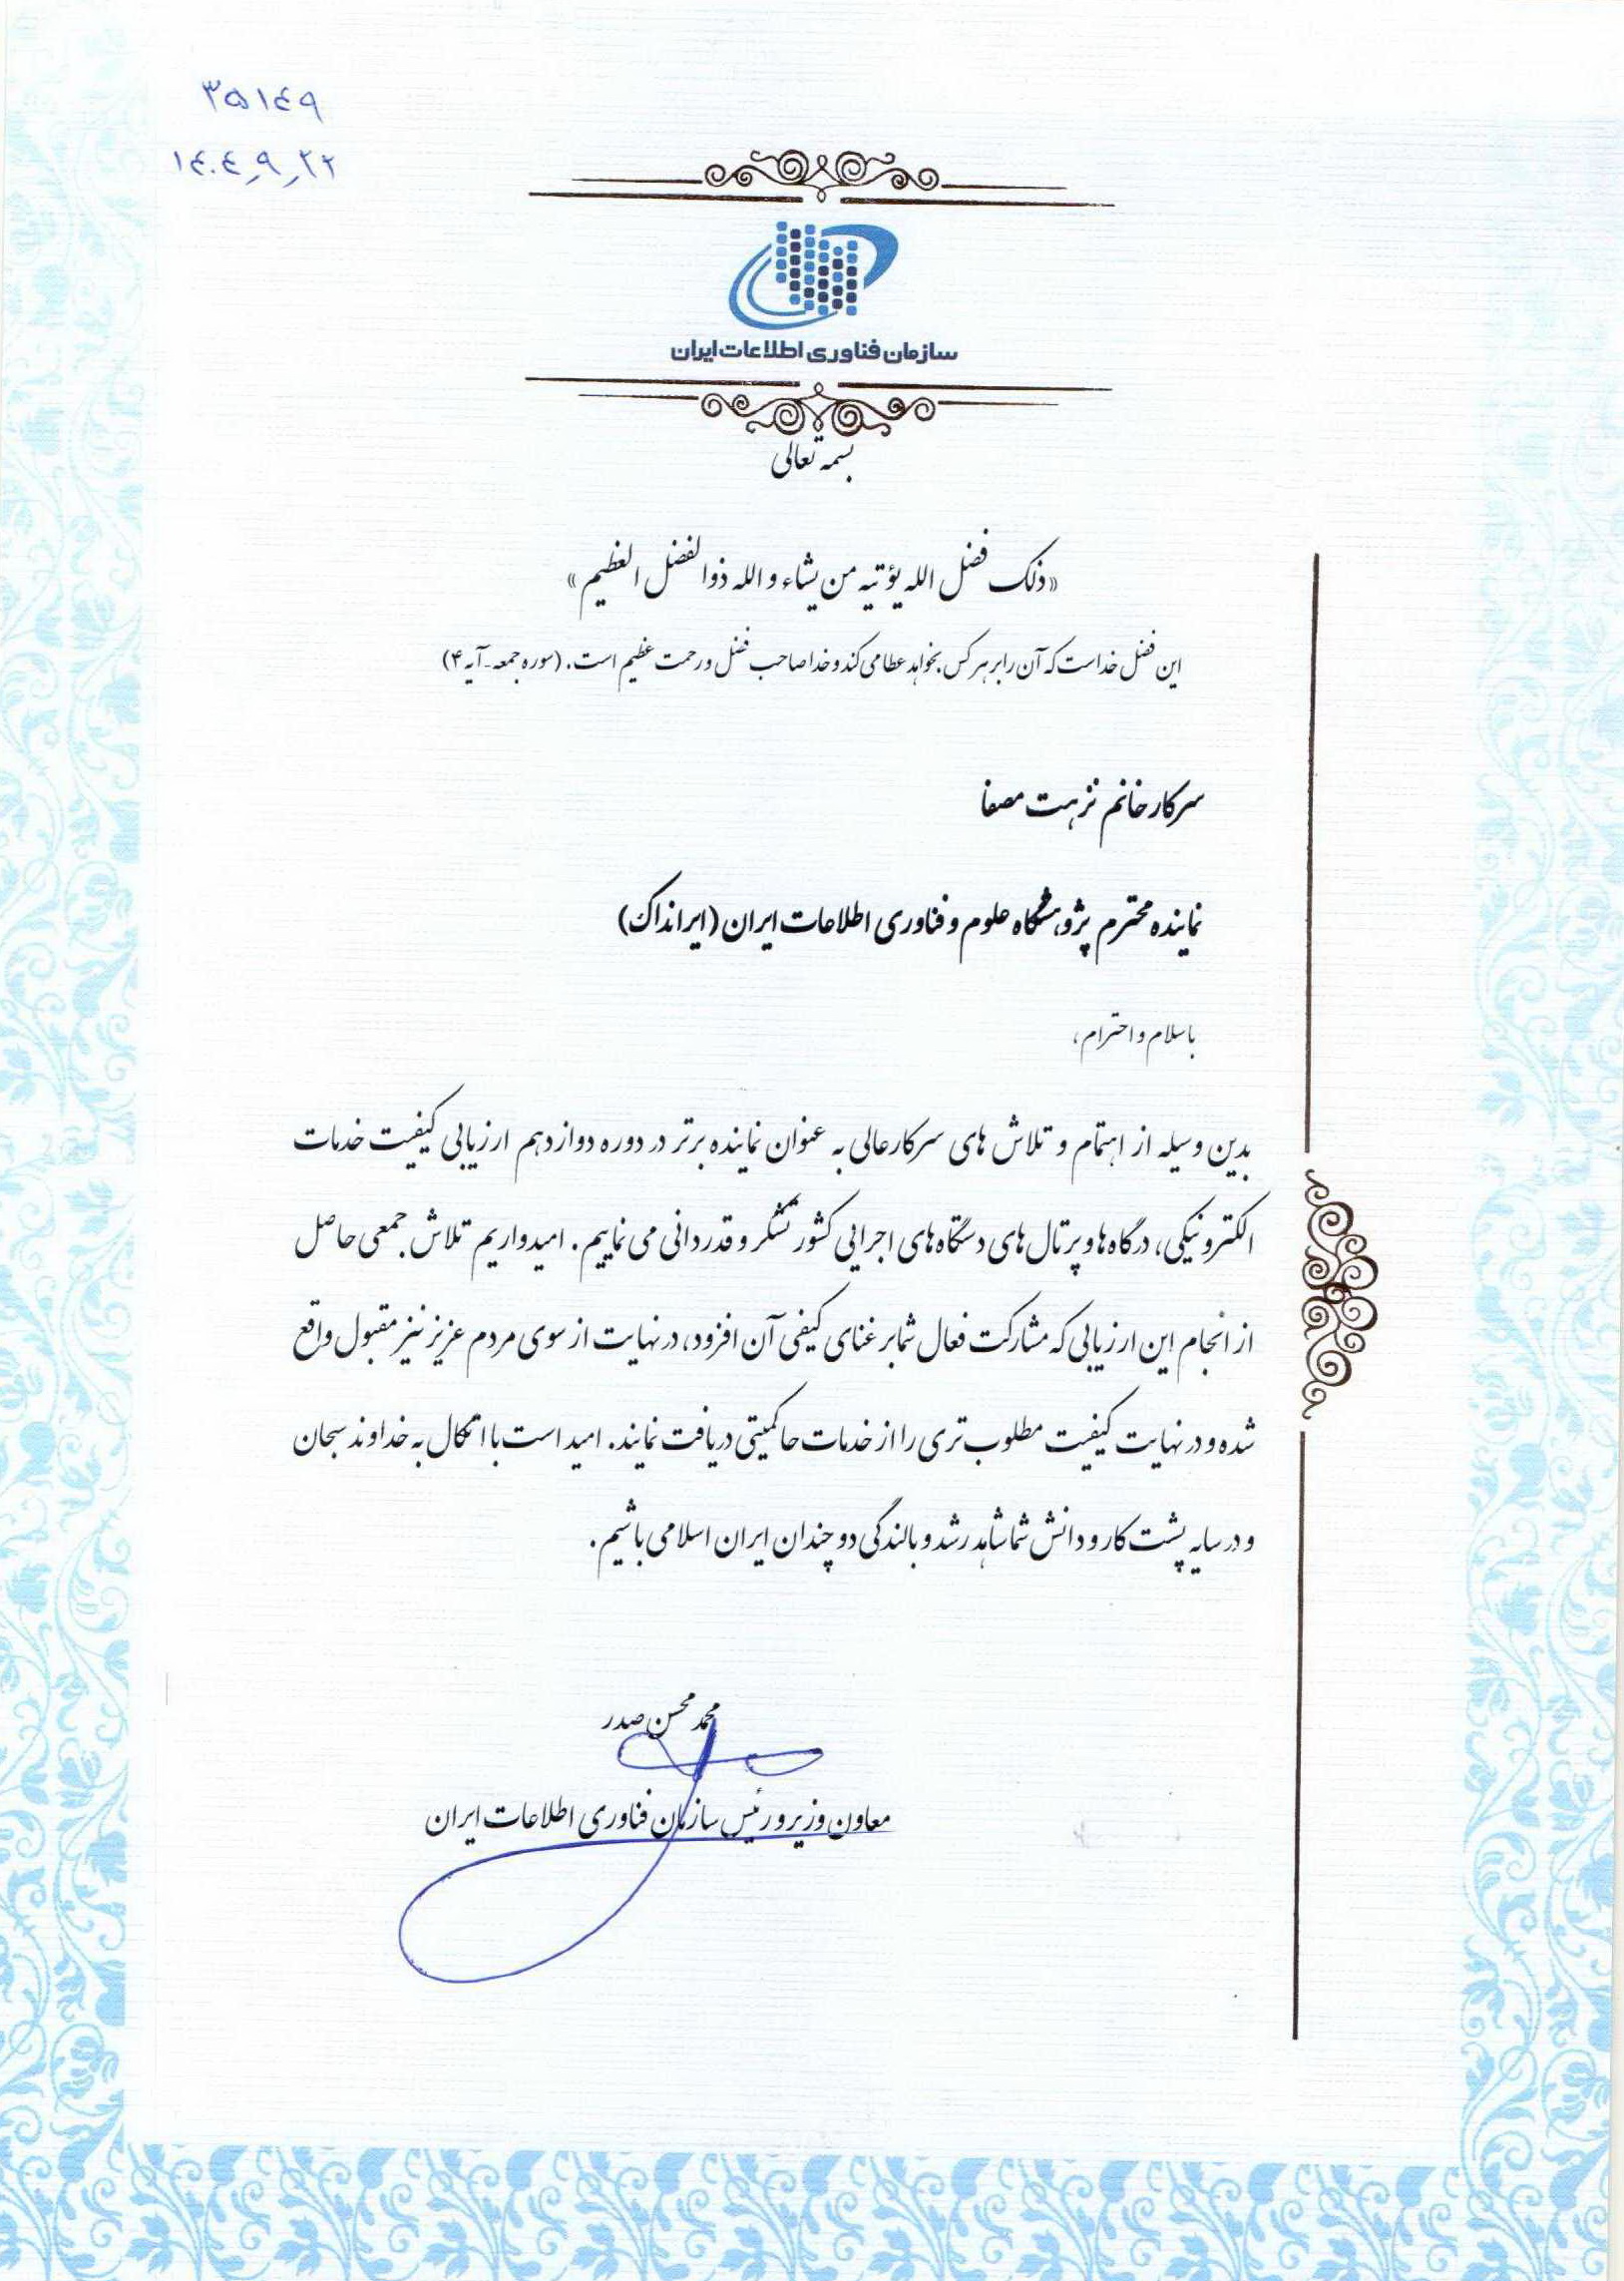 ۳۵۱۴۹
۱۴۰۴٫۹٫۲۲
سازمان فناوری اطلاعات ایران
بسمه تعالی
«ذلک فضل الله یؤتیه من یشاء و الله ذوالفضل العظیم»
این فضل خداست که آن را بر هر کس بخواهد عطا می کند و خدا صاحب فضل و رحمت عظیم است. (سوره جمعه-آیه ۴)
سرکار خانم نزهت مصفا
نماینده محترم پژوهشگاه علوم و فناوری اطلاعات ایران (ایرانداک)
با سلام و احترام،
بدین وسیله از اهتمام و تلاش های سرکارعالی به عنوان نماینده برتر در دوره دوازدهم ارزیابی کیفیت خدمات
الکترونیکی، درگاه ها و پرتال های دستگاه های اجرایی کشور تشکر و قدردانی می نماییم. امیدواریم تلاش جمعی حاصل
از انجام این ارزیابی که مشارکت فعال شما بر غنای کیفی آن افزود، در نهایت از سوی مردم عزیز نیز مقبول واقع
شده و در نهایت کیفیت مطلوب تری را از خدمات حاکمیتی دریافت نمایند. امید است با اتکال به خداوند سبحان
و در سایه پشت کار و دانش شما شاهد رشد و بالندگی دو چندان ایران اسلامی باشیم.
محمد محسن صدر
معاون وزیر و رئیس سازمان فناوری اطلاعات ایران